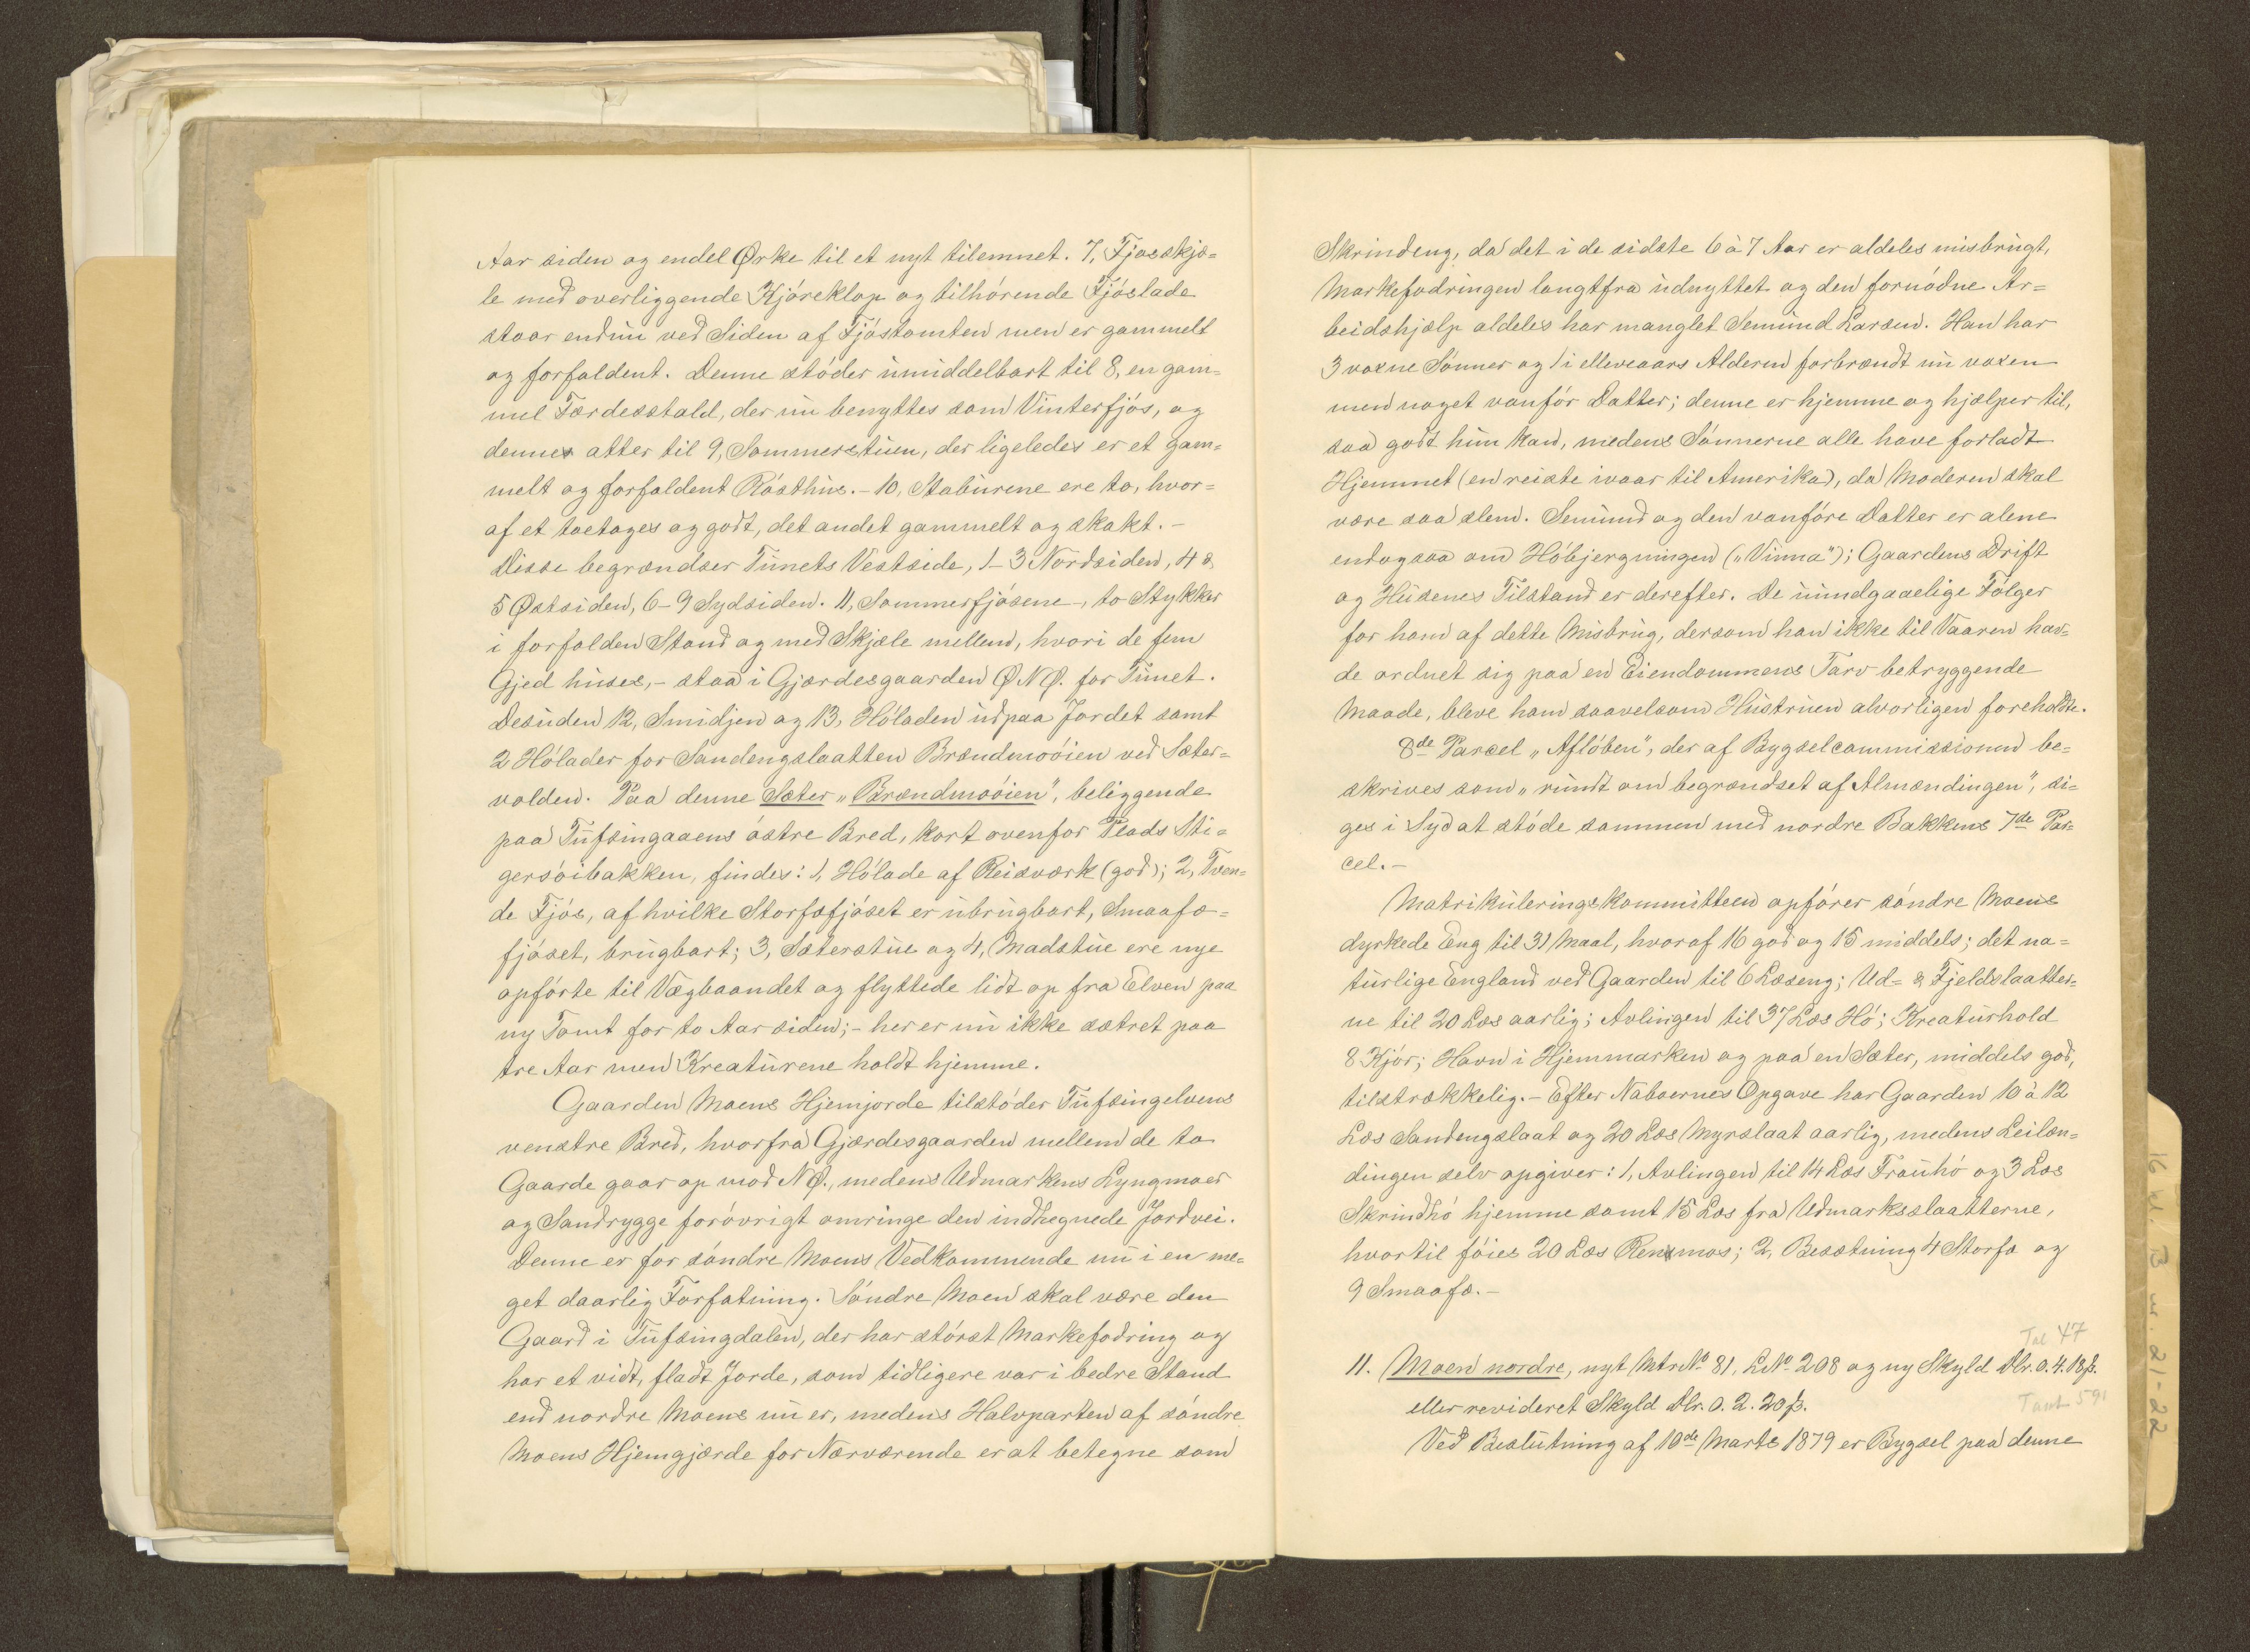 Aar siden og endel Ørke til et nyt tilemnet. 7, Fjosskjæ=
le med overliggende Kjóreklop og tilhórende Fjóslade
staar endnu ved Siden af Fjóstomten men er gammelt
og forfaldent. Denne stóder umiddelbart til 8, en gam=
mel Færdesstald, der nu benyttes som Vinterfjós, og
dennes atter til 9, Sommerstuen, der ligeledes er et gam=
melt og forfaldent Rósthus. – 10, Staburene ere to, hvor=
af et toetages og godt, det andet gammelt og skakt. –
Disse begrændser Tunets Vestside, 1–3 Nordsiden, 4 &
5 Østsiden, 6–9 Sydsiden. 11, Sommerfjósene –, to Stykker
i forfalden Stand og med Skjæle mellem, hvori de fem
Gjed huses, – staa i Gjærdesgaarden Ø.N.Ø. for Tunet.
Desuden 12, Smidjen og 13, Hóladen udpaa Jordet samt
2 Hólader for Sandengslaatten Brændmoóien ved Sæter=
volden. Paa denne Sæter „Brændmoóien", beliggende
paa Tufsingaaens óstre Bred, kort ovenfor Plads Sti=
gersóibakken, findes: 1, Hólade af Reisværk (god); 2, Tven=
de Fjós, af hvilke Storfæfjóset er ubrugbart, Smaafæ=
fjóset, brugbart; 3, Sæterstue og 4, Madstue ere nye
opfórte til Vægbaandet og flyttede lidt op fra Elven paa
ny Tomt for to Aar siden; – her er nu ikke sætret paa
tre Aar men Kreaturene holdt hjemme.
Gaarden Moens Hjemjorde tilstóder Tufsingelvens
venstre Bred, hvorfra Gjærdesgaarden mellem de to
Gaarde gaar op mod N.Ø., medens Udmarkens Lyngmoer
og Sandrygge foróvrigt omringe den indhegnede Jordvei.
Denne er for sóndre Moens Vedkommende nu i en me=
get daarlig Forfatning. Sóndre Moen skal være den
Gaard i Tufsingdalen, der har stórst Markefodring og
har et vidt, fladt Jorde, som tidligere var i bedre Stand
end nordre Moens nu er, medens Halvparten af sóndre
Moens Hjemgjærde for Nærværende er at betegne som
Skrindeng, da det i de sidste 6 à 7 Aar er aldeles misbrugt,
Markefodringen langtfra udnyttet og den fornódne Ar=
beidshjælp aldeles har manglet Semund Larsen. Han har
3 voxne Sónner og 1 i elleveaars Alderen forbrændt nu voxen
men noget vanfór Datter; denne er hjemme og hjælper til,
saa godt hun kan, medens Sónnerne alle have forladt
Hjemmet (en reiste ivaar til Amerika), da Moderen skal
være saa slem. Semund og den vanfóre Datter er alene
endogsaa om Hóbjergningen („Vinna"); Gaardens Drift
og Husenes Tilstand er derefter. De uundgaaelige Fólger
for ham af dette Misbrug, dersom han ikke til Vaaren hav=
de ordnet sig paa en Eiendommens Tarv betryggende
Maade, bleve ham saavelsom Hustruen alvorligen foreholdte.
8de Parcel „Aflóben", der af Bygselcommissionen be=
skrives som „rundt om begrændset af Almændingen", si=
ges i Syd at stóde sammen med nordre Bakkens 7de Par=
cel. –
Matrikuleringskommitteen opfórer sóndre Moens
dyrkede Eng til 31 Maal, hvoraf 16 god og 15 middels; det na=
turlige England ved Gaarden til 6 Læseng; Ud= & Fjeldslaatter=
ne til 20 Læs aarlig; Avlingen til 37 Læs Hó; Kreaturhold
8 Kjór; Havn i Hjemmarken og paa en Sæter, middels god,
tilstrækkelig. – Efter Naboernes Opgave har Gaarden 10 à 12
Læs Sandengslaat og 20 Læs Myrslaat aarlig, medens Leilæn=
dingen selv opgiver: 1, Avlingen til 14 Læs Frauhó og 3 Læs
Skrindhó hjemme samt 15 Læs fra Udmarksslaatterne,
hvortil fóies 20 Læs Renmos; 2, Besætning 4 Storfæ og
9 Smaafæ. –
Tal 47
11. Moen nordre, nyt Mtr.No. 81, L.No. 208 og ny Skyld Dlr. 0.4.18 ß.
eller revideret Skyld Dlr. 0.2.20 ß.
Tamt 591
Ved Beslutning af 10de Marts 1879 er Bygsel paa denne
16 u. B m. 21-22